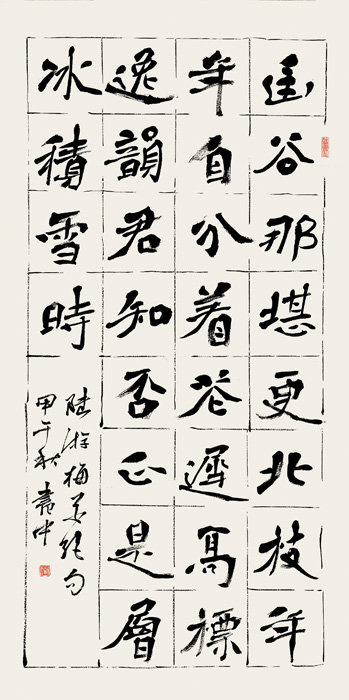 幽谷那堪更北枝年
年自分着花遲高標
逸韻君知否正是層
冰積雪時
陸游梅花絕句
甲午秋